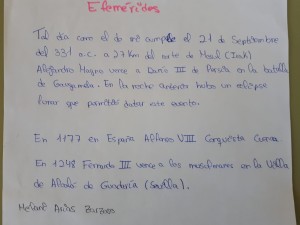 Efemérides
Tal día com el de se cumple el 21 de Septiembre
del 331 a.c. a 27 Km del norte de Mosul (Irak)
Alejandro Magno vence a Darío III de Persia en la batalla
de Gaugamela. En la noche anterior hubo un eclipse
lunar que permitió datar este evento.
En 1177 en España Alfonso VIII Conquista Cuenca.
En 1248 Fernando III vence a los musulmanes en la
de de (Sevilla).
Arias